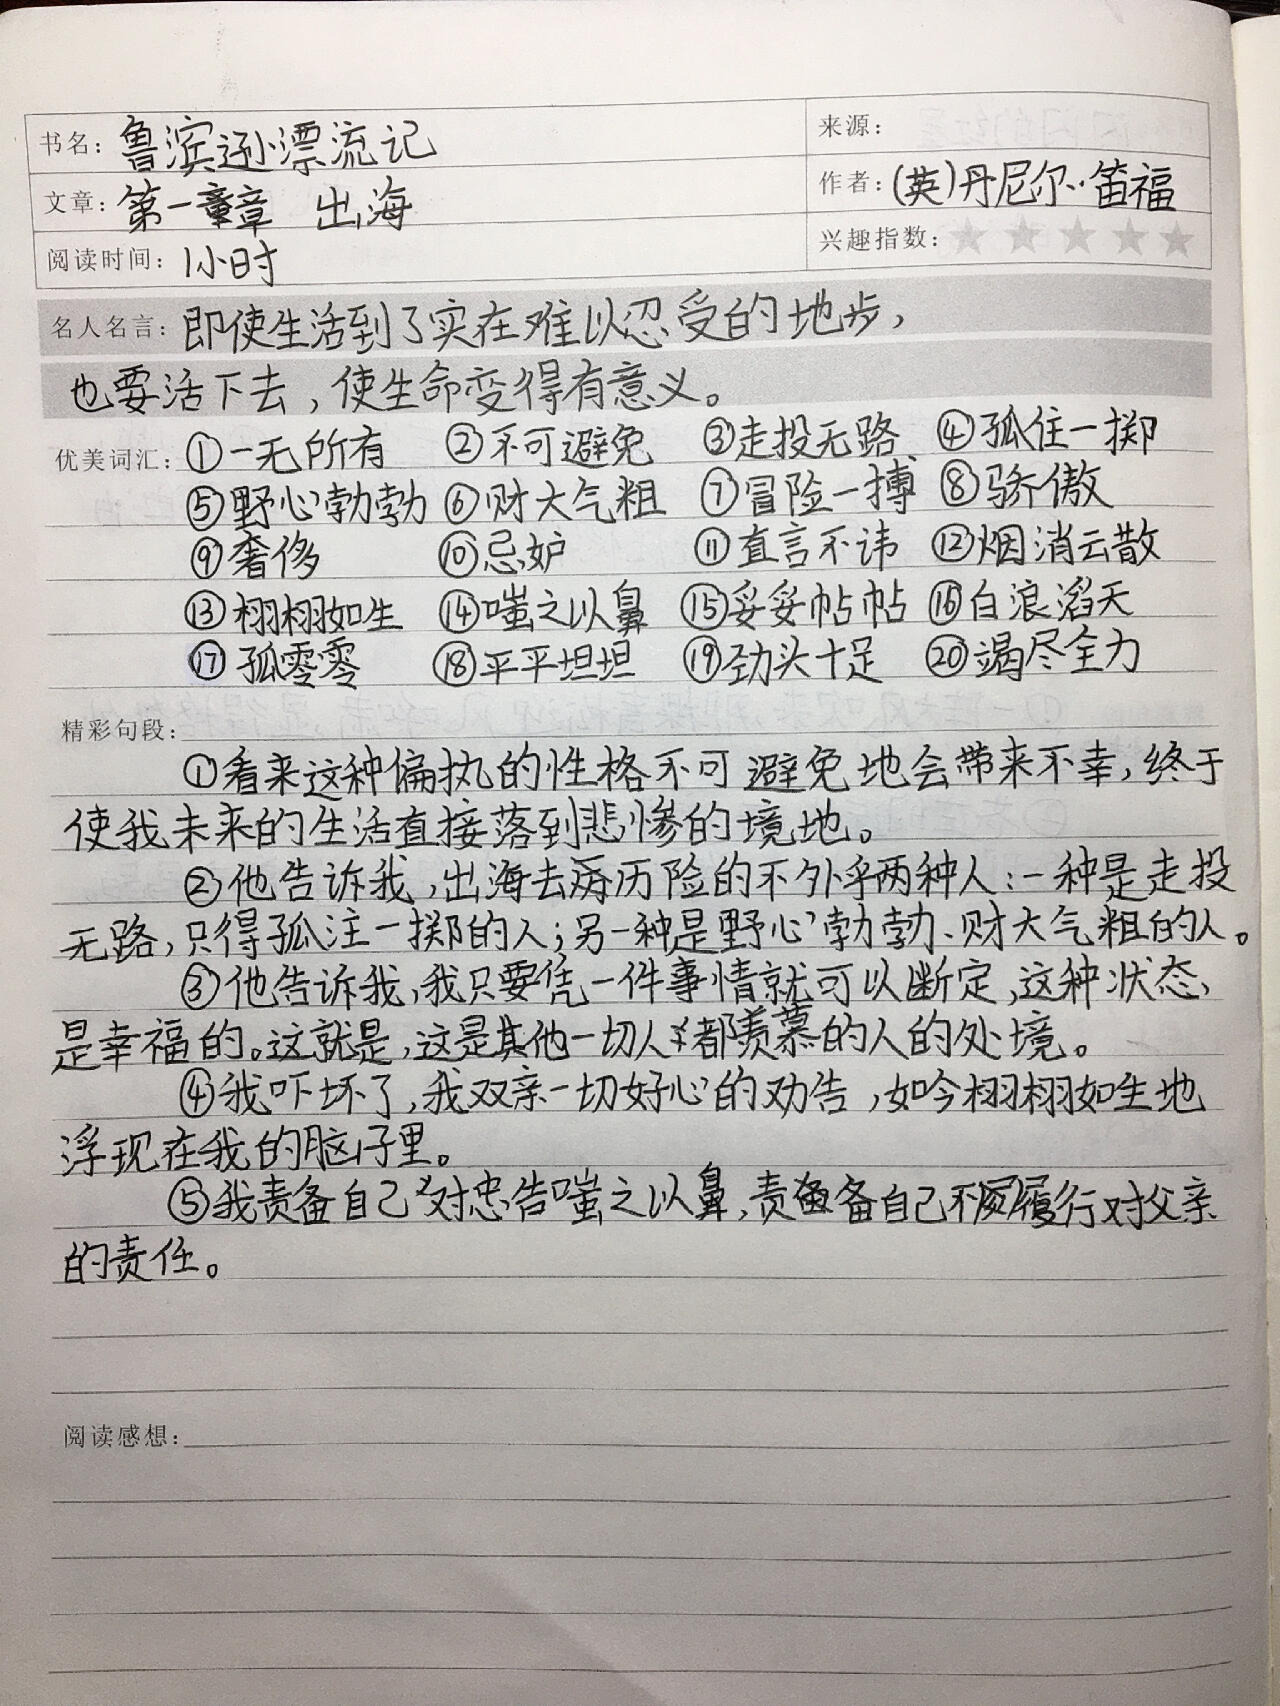 书名：鲁滨逊漂流记
来源：
文章：第一章 出海
作者：(英)丹尼尔·笛福
阅读时间：1小时
兴趣指数：
名人名言：即使生活到了实在难以忍受的地步，
也要活下去，使生命变得有意义。
优美词汇：①一无所有 ②不可避免 ③走投无路 ④孤住一掷
⑤野心勃勃 ⑥财大气粗 ⑦冒险一搏 ⑧骄傲
⑨奢侈 ⑩忌妒 ⑪直言不讳 ⑫烟消云散
⑬栩栩如生 ⑭嗤之以鼻 ⑮妥妥帖帖 ⑯白浪滔天
⑰孤零零 ⑱平平坦坦 ⑲劲头十足 ⑳竭尽全力
精彩句段：
①看来这种偏执的性格不可避免地会带来不幸，终于
使我未来的生活直接落到悲惨的境地。
②他告诉我，出海去历险的不外乎两种人：一种是走投
无路，只得孤注一掷的人；另一种是野心勃勃、财大气粗的人。
③他告诉我，我只要凭一件事情就可以断定，这种状态，
是幸福的。这就是，这是其他一切人都羡慕的人的处境。
④我吓坏了，我双亲一切好心的劝告，如今栩栩如生地
浮现在我的脑子里。
⑤我责备自己对忠告嗤之以鼻，责备自己不履行对父亲
的责任。
阅读感想：